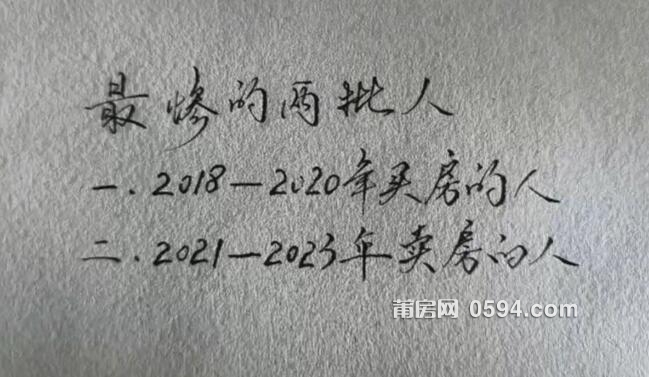 最惨的两批人
一.2018—2020年买房的人
二.2021—2023年卖房的人
莆房网 0594.com